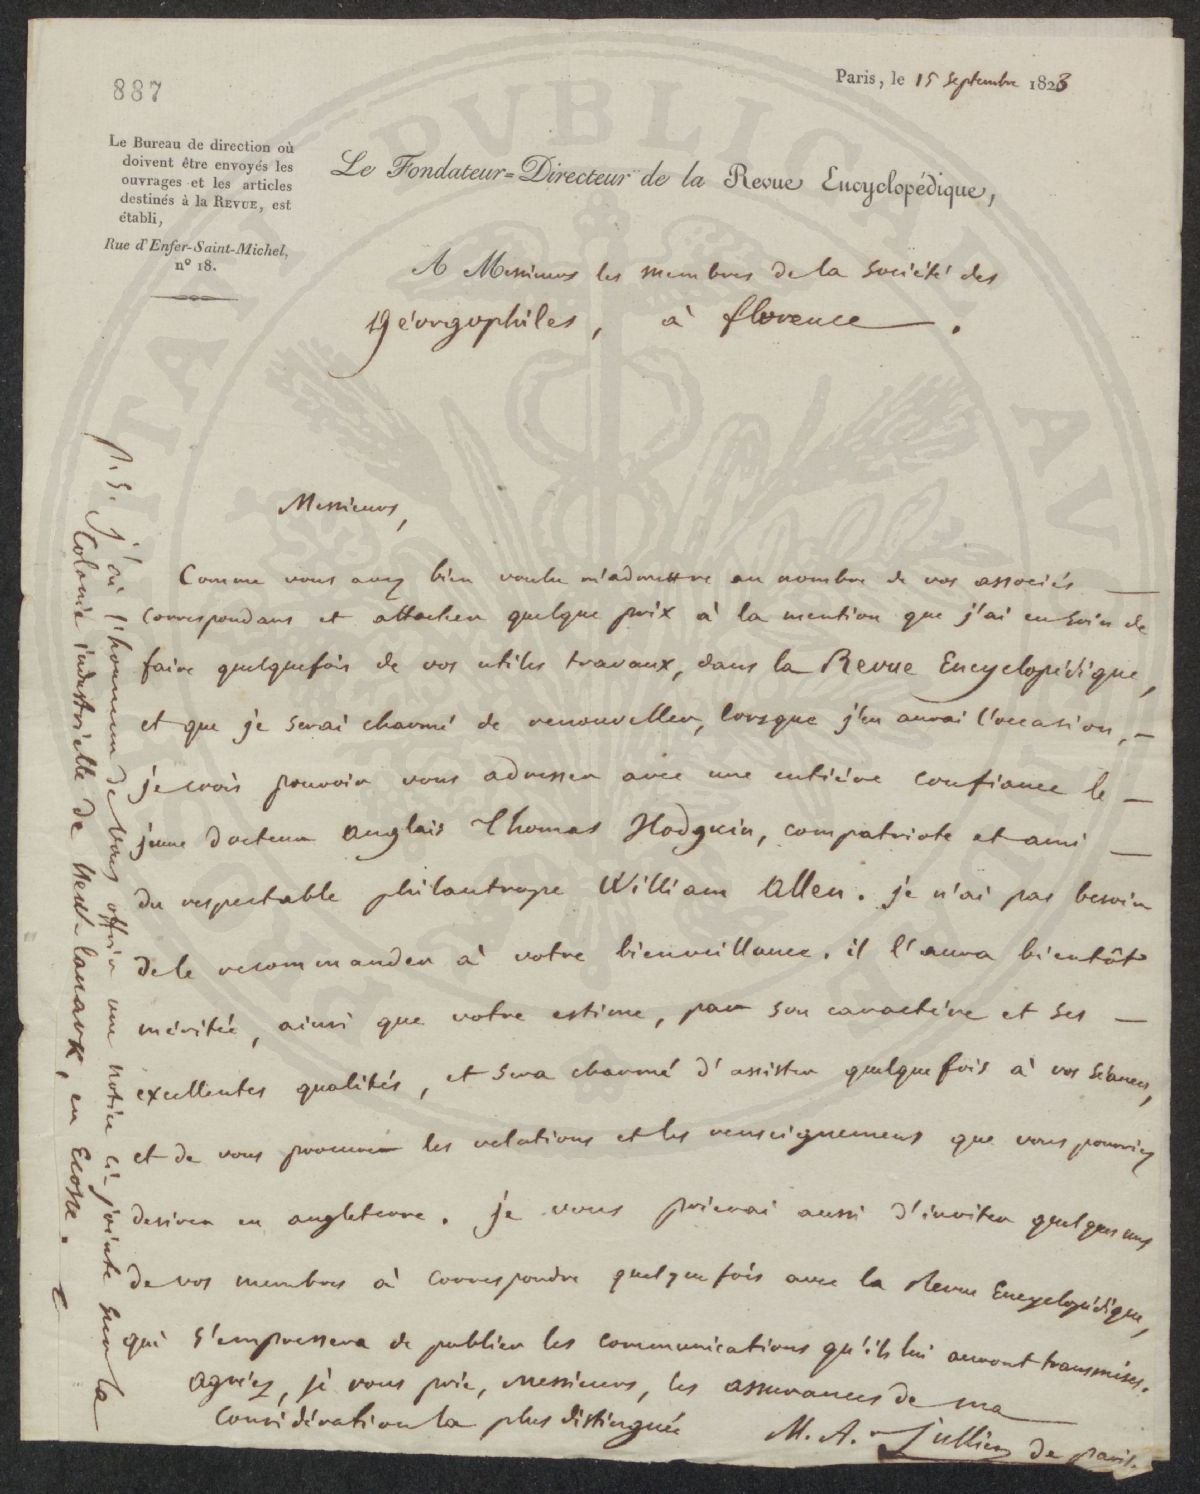 887
Paris, le 15 Septembre 1823
Le Bureau de direction où
doivent être envoyés les
ouvrages et les articles
destinés à la REVUE, est
établi,
Rue d'Enfer-Saint-Michel,
n° 18.
Le Fondateur=Directeur de la Revue Encyclopédique,
A Messieurs les membres de la Société des
géorgophiles, à florence.
Messieurs,
Comme vous avez bien voulu m'admettre au nombre de vos associés
correspondans et attacher quelque prix à la mention que j'ai eu soin de
faire quelquefois de vos utiles travaux, dans la Revue Encyclopédique,
et que je serai charmé de renouveller, lorsque j'en aurai l'occasion, —
je crois pouvoir vous adresser avec une entière confiance le —
jeune docteur anglais Thomas Hodgkin, compatriote et ami —
du respectable philantrope William Allen. je n'ai pas besoin
de le recommander à votre bienveillance. il l'aura bientôt
méritée, ainsi que votre estime, par son caractère et ses —
excellentes qualités, et sera charmé d'assister quelquefois à vos séances,
et de vous procurer les relations et les renseignemens que vous pourriez
desirer en angleterre. je vous prierai aussi d'inviter quelques uns
de vos membres à correspondre quelquefois avec la Revue Encyclopédique,
qui s'empressera de publier les communications qu'ils lui auront transmises.
agréez, je vous prie, messieurs, les assurances de ma
considération la plus distinguée
M. A. Jullien de paris.
p.s. j'ai l'honneur de vous offrir une notice ci-jointe sur la
Colonie industrielle de New-lanark, en Ecosse.